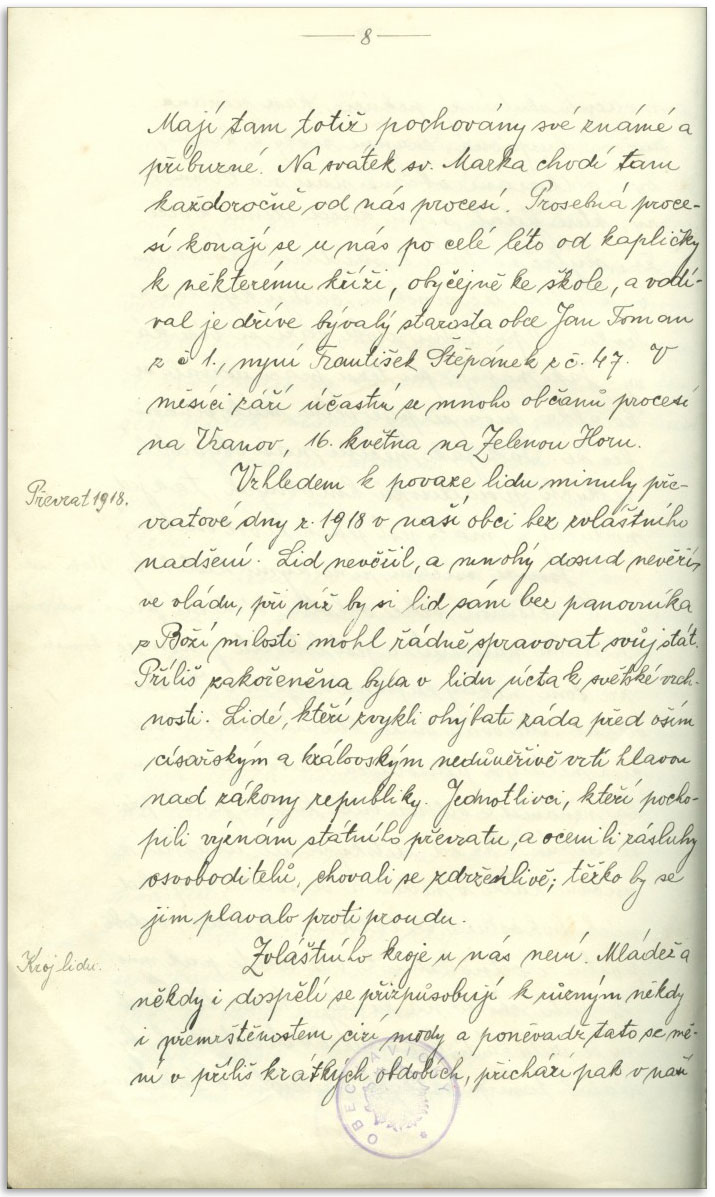 8
Mají tam totiž pochovány své známé a
příbuzné. Na svátek sv. Marka chodí tam
každoročně od nás procesí. Prosebná proce-
sí konají se u nás po celé léto od kapličky
k některému kříži, obyčejně ke škole, a vodí-
val je dříve bývalý starosta obce Jan Toman
z č 1., nyní František Štěpánek z č. 47. V
měsíci září účastní se mnoho občanů procesí
na Vranov, 16. května na Zelenou Horu.
Převrat 1918.
Vzhledem k povaze lidu minuly pře-
vratové dny r. 1918 v naší obci bez zvláštního
nadšení. Lid nevěřil, a mnohý dosud nevěří,
ve vládu, při níž by si lid sám bez panovníka
z Boží milosti mohl řádně spravovat svůj stát.
Příliš zakořeněna byla v lidu úcta k světské vrch-
nosti. Lidé, kteří zvykli ohýbati záda před oním
císařským a královským nedůvěřivě vrtí hlavou
nad zákony republiky. Jednotlivci, kteří pocho-
pili význam státního převratu, a ocenili zásluhy
osvoboditelů, chovali se zdrženlivě; těžko by se
jim plavalo proti proudu.
Kroj lidu.
Zvláštního kroje u nás není. Mládež a
někdy i dospělí se přizpůsobují k různým někdy
i přemrštěnostem cizí mody a poněvadž tato se mě-
ní v příliš krátkých obdobích, přichází pak v naší
OBEC